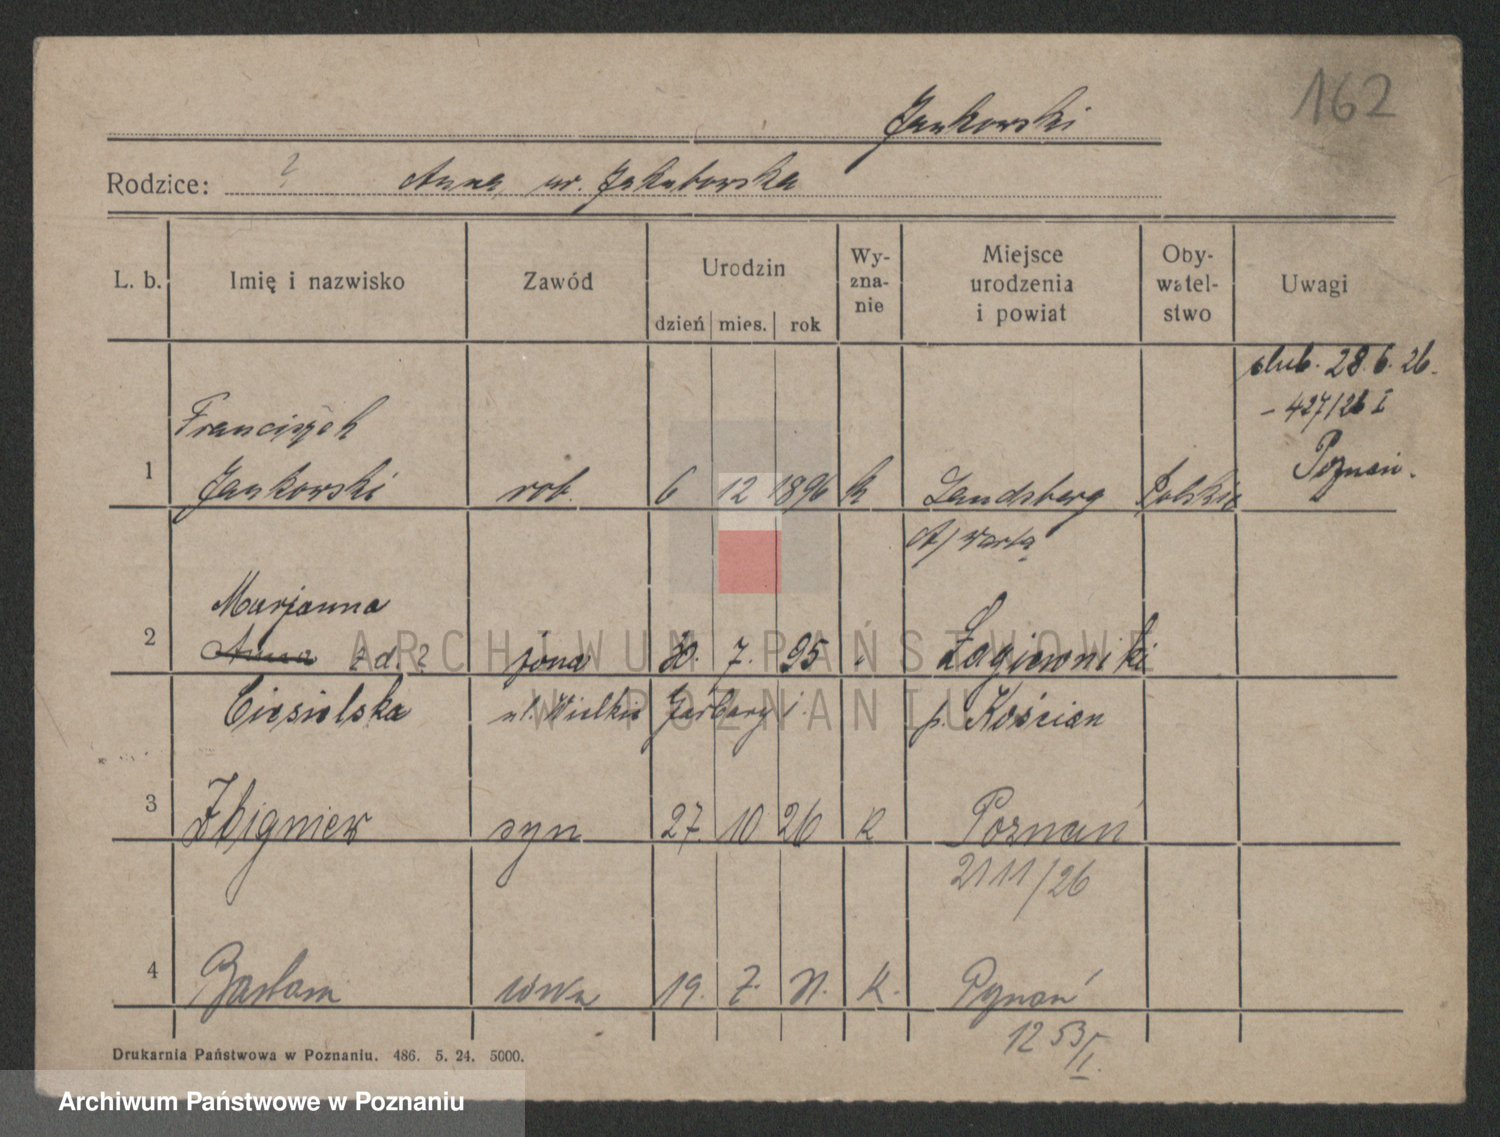 162
Jankowski
Rodzice: ? Anna ur. Jakubowska
L. b. Imię i nazwisko Zawód Urodzin dzień mies. rok Wy-zna-nie Miejsce urodzenia i powiat Oby-watel-stwo Uwagi
ślub. 28.6.26.
- 427/26 I
Poznań.
Franciszek
1 Jankowski rob. 6 12 1896 k Landsberg Polskie
n/Wartą
Marjanna
2 Anna z d. ? żona 30. 7. 95 Łagiewniki
Ciesielska ul. Wielkie Garbary p. Kościan
3 Zbigniew syn 27. 10 26 k Poznań
2111/26
4 19. 7. k. Poznań
1253/I.
Drukarnia Państwowa w Poznaniu. 486. 5. 24. 5000.
ARCHIWUM PAŃSTWOWE
W POZNANIU
Archiwum Państwowe w Poznaniu